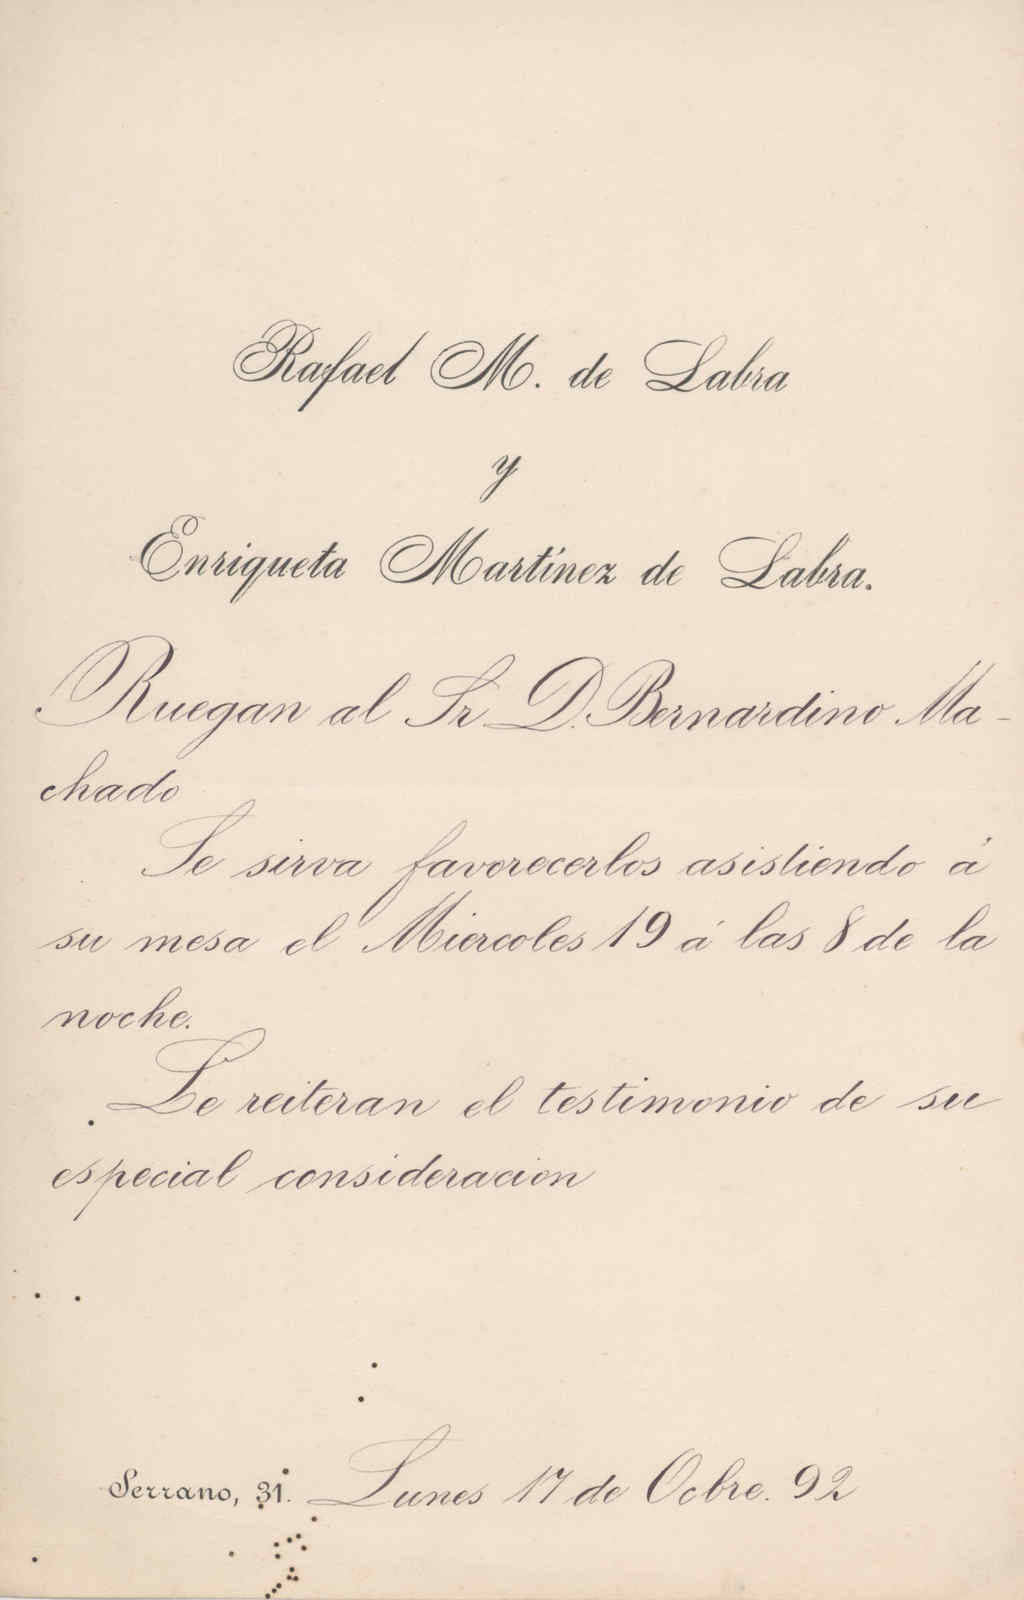 Rafael M. de Labra
y
Enriqueta Martínez de Labra.
Ruegan al Sr. D. Bernardino Ma-
chado
Se sirva favorecerlos asistiendo á
su mesa el Miercoles 19 á las 8 de la
noche.
Le reiteran el testimonio de su
especial consideracion
Serrano, 31. Lunes 17 de Ocbre. 92